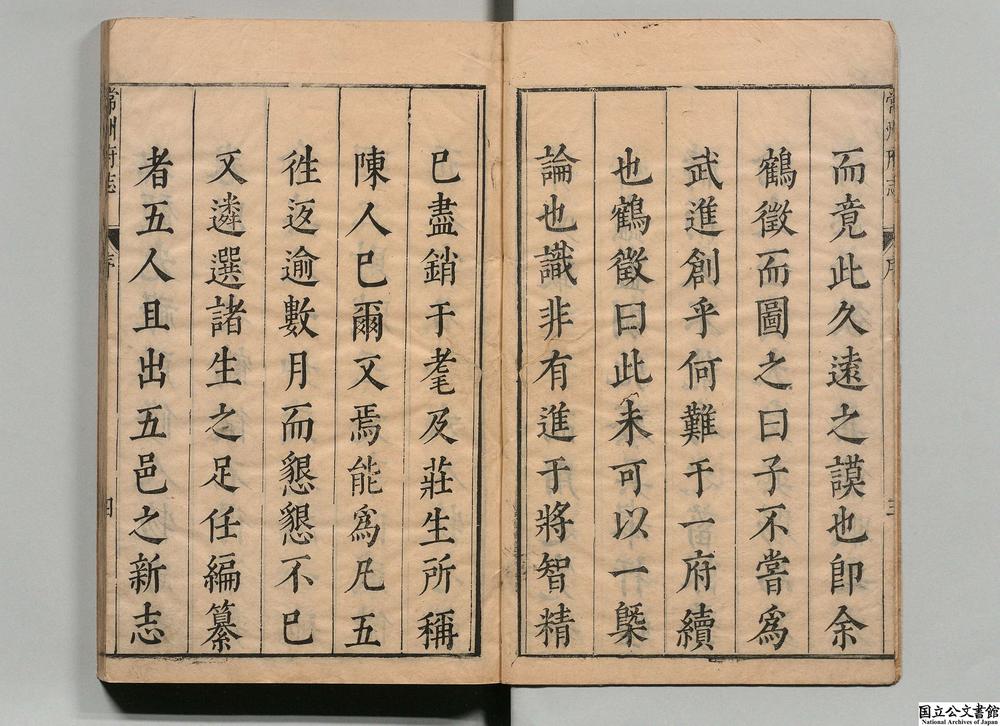 常州府志
序
三
而竟此久遠之謨也卽余
鶴徵而圖之曰子不嘗爲
武進創乎何難于一府續
也鶴徵曰此未可以一槩
論也識非有進于將智精
巳盡銷于耄及莊生所稱
陳人巳爾又焉能爲凡五
徃返逾數月而懇懇不巳
又遴選諸生之足任編纂
者五人且出五邑之新志
常州府志
序
四
国立公文書館
National Archives of Japan